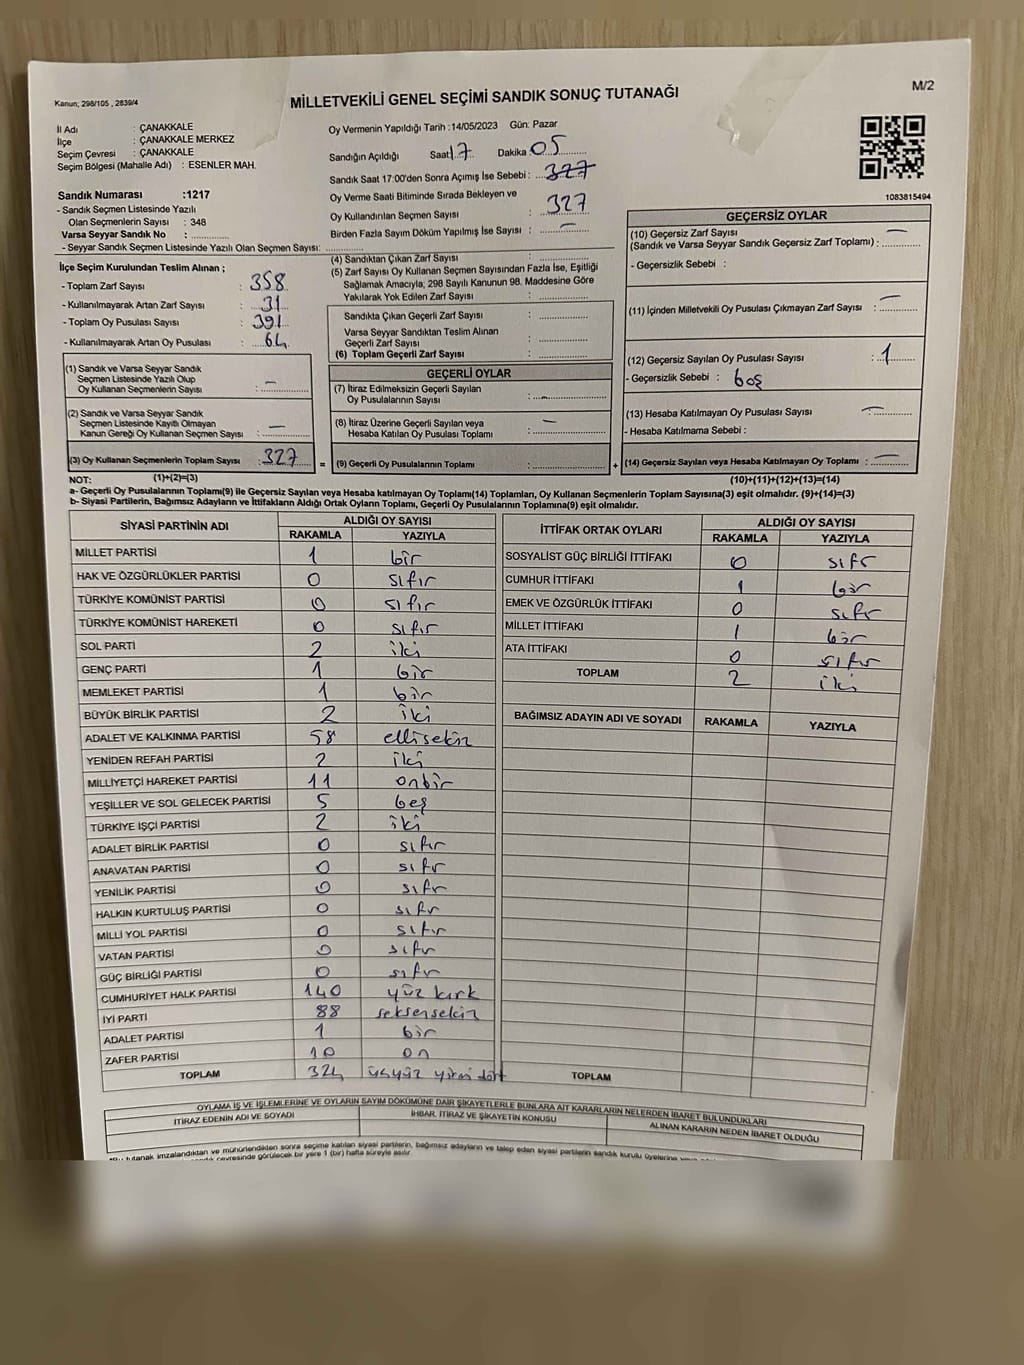 Kanun; 298/105 , 2839/4
MİLLETVEKİLİ GENEL SEÇİMİ SANDIK SONUÇ TUTANAĞI
M/2
İl Adı : ÇANAKKALE
İlçe : ÇANAKKALE MERKEZ
Seçim Çevresi : ÇANAKKALE
Seçim Bölgesi (Mahalle Adı) : ESENLER MAH.
Sandık Numarası :1217
- Sandık Seçmen Listesinde Yazılı
Olan Seçmenlerin Sayısı : 348
Varsa Seyyar Sandık No :
- Seyyar Sandık Seçmen Listesinde Yazılı Olan Seçmen Sayısı:
Oy Vermenin Yapıldığı Tarih :14/05/2023 Gün: Pazar
Sandığın Açıldığı Saat 17 Dakika 05
Sandık Saat 17:00'den Sonra Açımış İse Sebebi : 327
Oy Verme Saati Bitiminde Sırada Bekleyen ve
Oy Kullandırılan Seçmen Sayısı : 327
Birden Fazla Sayım Döküm Yapılmış İse Sayısı : —
1083815494
İlçe Seçim Kurulundan Teslim Alınan ;
- Toplam Zarf Sayısı : 358
- Kullanılmayarak Artan Zarf Sayısı : 31
- Toplam Oy Pusulası Sayısı : 391
- Kullanılmayarak Artan Oy Pusulası : 64
(1) Sandık ve Varsa Seyyar Sandık
Seçmen Listesinde Yazılı Olup
Oy Kullanan Seçmenlerin Sayısı : —
(2) Sandık ve Varsa Seyyar Sandık
Seçmen Listesinde Kayıtlı Olmayan
Kanun Gereği Oy Kullanan Seçmen Sayısı : —
(3) Oy Kullanan Seçmenlerin Toplam Sayısı : 327
(4) Sandıktan Çıkan Zarf Sayısı :
(5) Zarf Sayısı Oy Kullanan Seçmen Sayısından Fazla İse, Eşitliği
Sağlamak Amacıyla; 298 Sayılı Kanunun 98. Maddesine Göre
Yakılarak Yok Edilen Zarf Sayısı :
Sandıkta Çıkan Geçerli Zarf Sayısı :
Varsa Seyyar Sandıktan Teslim Alınan
Geçerli Zarf Sayısı :
(6) Toplam Geçerli Zarf Sayısı :
GEÇERLİ OYLAR
(7) İtiraz Edilmeksizin Geçerli Sayılan
Oy Pusulalarının Sayısı : —
(8) İtiraz Üzerine Geçerli Sayılan veya
Hesaba Katılan Oy Pusulası Toplamı : —
= (9) Geçerli Oy Pusulalarının Toplamı :
GEÇERSİZ OYLAR
(10) Geçersiz Zarf Sayısı
(Sandık ve Varsa Seyyar Sandık Geçersiz Zarf Toplamı) : —
- Geçersizlik Sebebi :
(11) İçinden Milletvekili Oy Pusulası Çıkmayan Zarf Sayısı : —
(12) Geçersiz Sayılan Oy Pusulası Sayısı : 1
- Geçersizlik Sebebi : boş
(13) Hesaba Katılmayan Oy Pusulası Sayısı : —
- Hesaba Katılmama Sebebi :
+ (14) Geçersiz Sayılan veya Hesaba Katılmayan Oy Toplamı : —
NOT: (1)+(2)=(3) (10)+(11)+(12)+(13)=(14)
a- Geçerli Oy Pusulalarının Toplamı(9) ile Geçersiz Sayılan veya Hesaba katılmayan Oy Toplamı(14) Toplamları, Oy Kullanan Seçmenlerin Toplam Sayısına(3) eşit olmalıdır. (9)+(14)=(3)
b- Siyasi Partilerin, Bağımsız Adayların ve İttifakların Aldığı Ortak Oyların Toplamı, Geçerli Oy Pusulalarının Toplamına(9) eşit olmalıdır.
SİYASİ PARTİNİN ADI ALDIĞI OY SAYISI
RAKAMLA YAZIYLA
MİLLET PARTİSİ 1 bir
HAK VE ÖZGÜRLÜKLER PARTİSİ 0 sıfır
TÜRKİYE KOMÜNİST PARTİSİ 0 sıfır
TÜRKİYE KOMÜNİST HAREKETİ 0 sıfır
SOL PARTİ 2 iki
GENÇ PARTİ 1 bir
MEMLEKET PARTİSİ 1 bir
BÜYÜK BİRLİK PARTİSİ 2 iki
ADALET VE KALKINMA PARTİSİ 58 ellisekiz
YENİDEN REFAH PARTİSİ 2 iki
MİLLİYETÇİ HAREKET PARTİSİ 11 onbir
YEŞİLLER VE SOL GELECEK PARTİSİ 5 beş
TÜRKİYE İŞÇİ PARTİSİ 2 iki
ADALET BİRLİK PARTİSİ 0 sıfır
ANAVATAN PARTİSİ 0 sıfır
YENİLİK PARTİSİ 0 sıfır
HALKIN KURTULUŞ PARTİSİ 0 sıfır
MİLLİ YOL PARTİSİ 0 sıfır
VATAN PARTİSİ 0 sıfır
GÜÇ BİRLİĞİ PARTİSİ 0 sıfır
CUMHURİYET HALK PARTİSİ 140 yüz kırk
İYİ PARTİ 88 seksensekiz
ADALET PARTİSİ 1 bir
ZAFER PARTİSİ 10 on
TOPLAM 324 üçyüz yirmi dört
İTTİFAK ORTAK OYLARI ALDIĞI OY SAYISI
RAKAMLA YAZIYLA
SOSYALİST GÜÇ BİRLİĞİ İTTİFAKI 0 sıfır
CUMHUR İTTİFAKI 1 bir
EMEK VE ÖZGÜRLÜK İTTİFAKI 0 sıfır
MİLLET İTTİFAKI 1 bir
ATA İTTİFAKI 0 sıfır
TOPLAM 2 iki
BAĞIMSIZ ADAYIN ADI VE SOYADI RAKAMLA YAZIYLA
TOPLAM
OYLAMA İŞ VE İŞLEMLERİNE VE OYLARIN SAYIM DÖKÜMÜNE DAİR ŞİKAYETLERLE BUNLARA AİT KARARLARIN NELERDEN İBARET BULUNDUKLARI
İTİRAZ EDENİN ADI VE SOYADI İHBAR, İTİRAZ VE ŞİKAYETİN KONUSU ALINAN KARARIN NEDEN İBARET OLDUĞU
tutanak imzalandıktan ve mühürlendikten sonra seçime katılan siyasi partilerin, bağımsız adayların ve talep eden siyasi partilerin sandık kurulu üyelerine
çevresinde görülecek bir yere 1 (bir) hafta süreyle asılır.